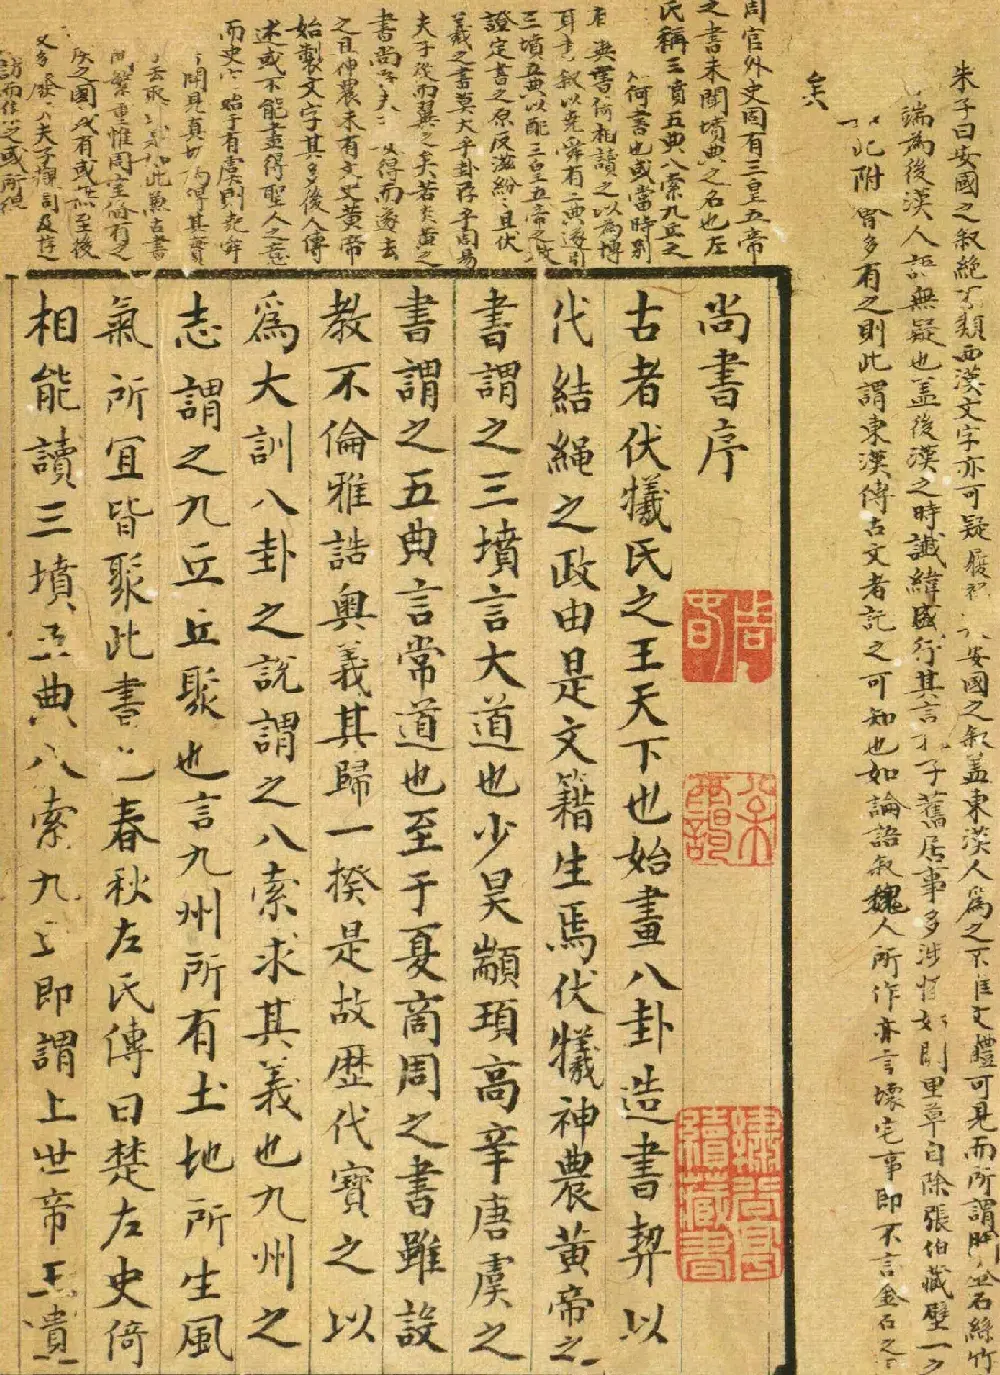 朱子曰安國之叙絶類西漢文字亦可疑履祥安國之叙盖東漢人爲之不惟文體可見而所謂石絲竹
端為後漢人語無疑也盖後漢之時讖緯盛行其言子舊居事多涉怪如里草自除張伯藏璧一
此附會多有之則此謂東漢傳古文者託之可知也如論語叙魏人所作亦言壞宅事即不言金石之
周官外史固有三皇五帝
之書未聞墳典之名也左
氏稱三墳五典八索九丘之
何書也或當時別
有典書何札讀之以為博
耳叙以堯舜有二典遂引
三墳五典以配三皇五帝之
證定書之原反滋紛且伏
羲之書莫大乎卦存乎周易
夫子從而翼之矣若炎黄之
書尚夫得而遂去
之且神農未有文史黄帝
始製文字其多後人傳
述或不能盡得聖人之意
而史始于有虞則
聞見真切得其實
去取此古書
繁重惟周室備有之
之國或有或無至後
夫子司及
訪而得之或所得
尚書序
古者伏犧氏之王天下也始畫八卦造書契以
代結繩之政由是文籍生焉伏犧神農黄帝之
書謂之三墳言大道也少昊顓頊高辛唐虞之
書謂之五典言常道也至于夏商周之書雖設
教不倫雅誥奥義其歸一揆是故歴代寶之以
爲大訓八卦之説謂之八索求其義也九州之
志謂之九丘丘聚也言九州所有土地所生風
氣所宜皆聚此書也春秋左氏傳曰楚左史倚
相能讀三墳五典八索九丘即謂上世帝王遺